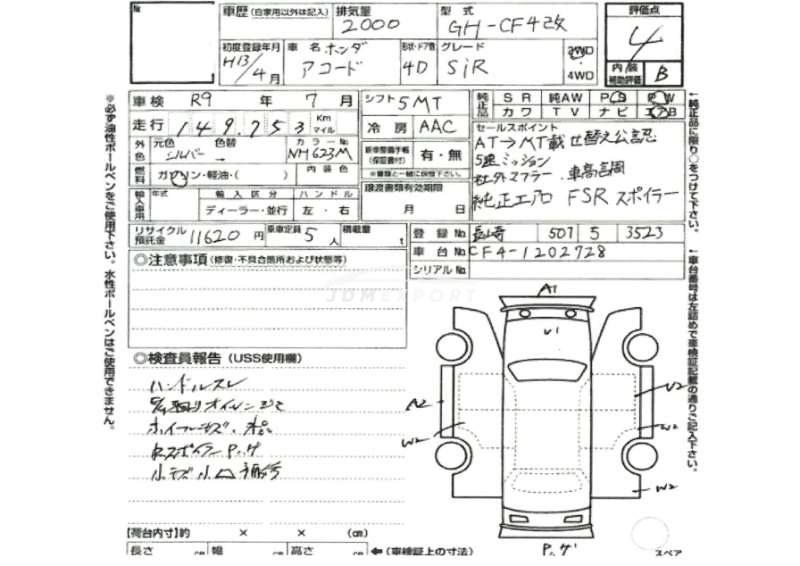 車歴(自家用以外は記入) 排気量 2000 型式 GH-CF4改 評価点 4
初度登録年月 H13/4月 車名 ホンダ アコード 形状・ドア数 4D グレード SiR 2WD 4WD 内/装 補助評価 B
車検 R9 年 7 月 シフト 5MT 純正品 SR 純AW PS PW
走行 149,753 Km マイル 冷房 AAC カワ TV ナビ エアB
外色 元色 シルバー 色替 カラーNo NH623M 新車整備手帳(保証書付) 有・無
※書類と一緒に保管下さい。
燃料 ガソリン・軽油・( ) 内装色
輸入車用 年式 輸入区分 ディーラー・並行 ハンドル 左・右 譲渡書類有効期限 月 日
セールスポイント
AT→MT載せ替え公認
5速ミッション
社外マフラー 車高調
純正エアロ FSR スポイラー
リサイクル預託金 11620 円 乗車定員 5 人 積載量 t
登録No 長崎 507 5 3523
車台No CF4-1202728
シリアルNo
◎注意事項(修復・不具合箇所および状態等)
JDMEXPORT
◎検査員報告(USS使用欄)
ハンドルスレ
ホイールキズ、
小キズ小凹 補修
A1
U1
A2
W2
U2
W2
W2
スペア
【荷台内寸】約 × × (cm)
長さ cm 幅 cm 高さ cm ←(車検証上の寸法)
※必ず油性ボールペンをご使用下さい。水性ボールペンはご使用できません。
←純正品に限り○をつけて下さい。
←車台番号は左詰めで車検証記載の通りご記入下さい。